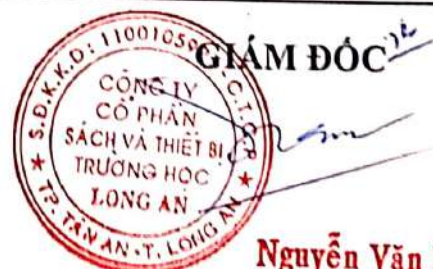 GIÁM ĐỐC
CÔNG TY
CỔ PHẦN
SÁCH VÀ THIẾT BỊ
TRƯỜNG HỌC
LONG AN
TP. TÂN AN - T. LONG AN
Nguyễn Văn